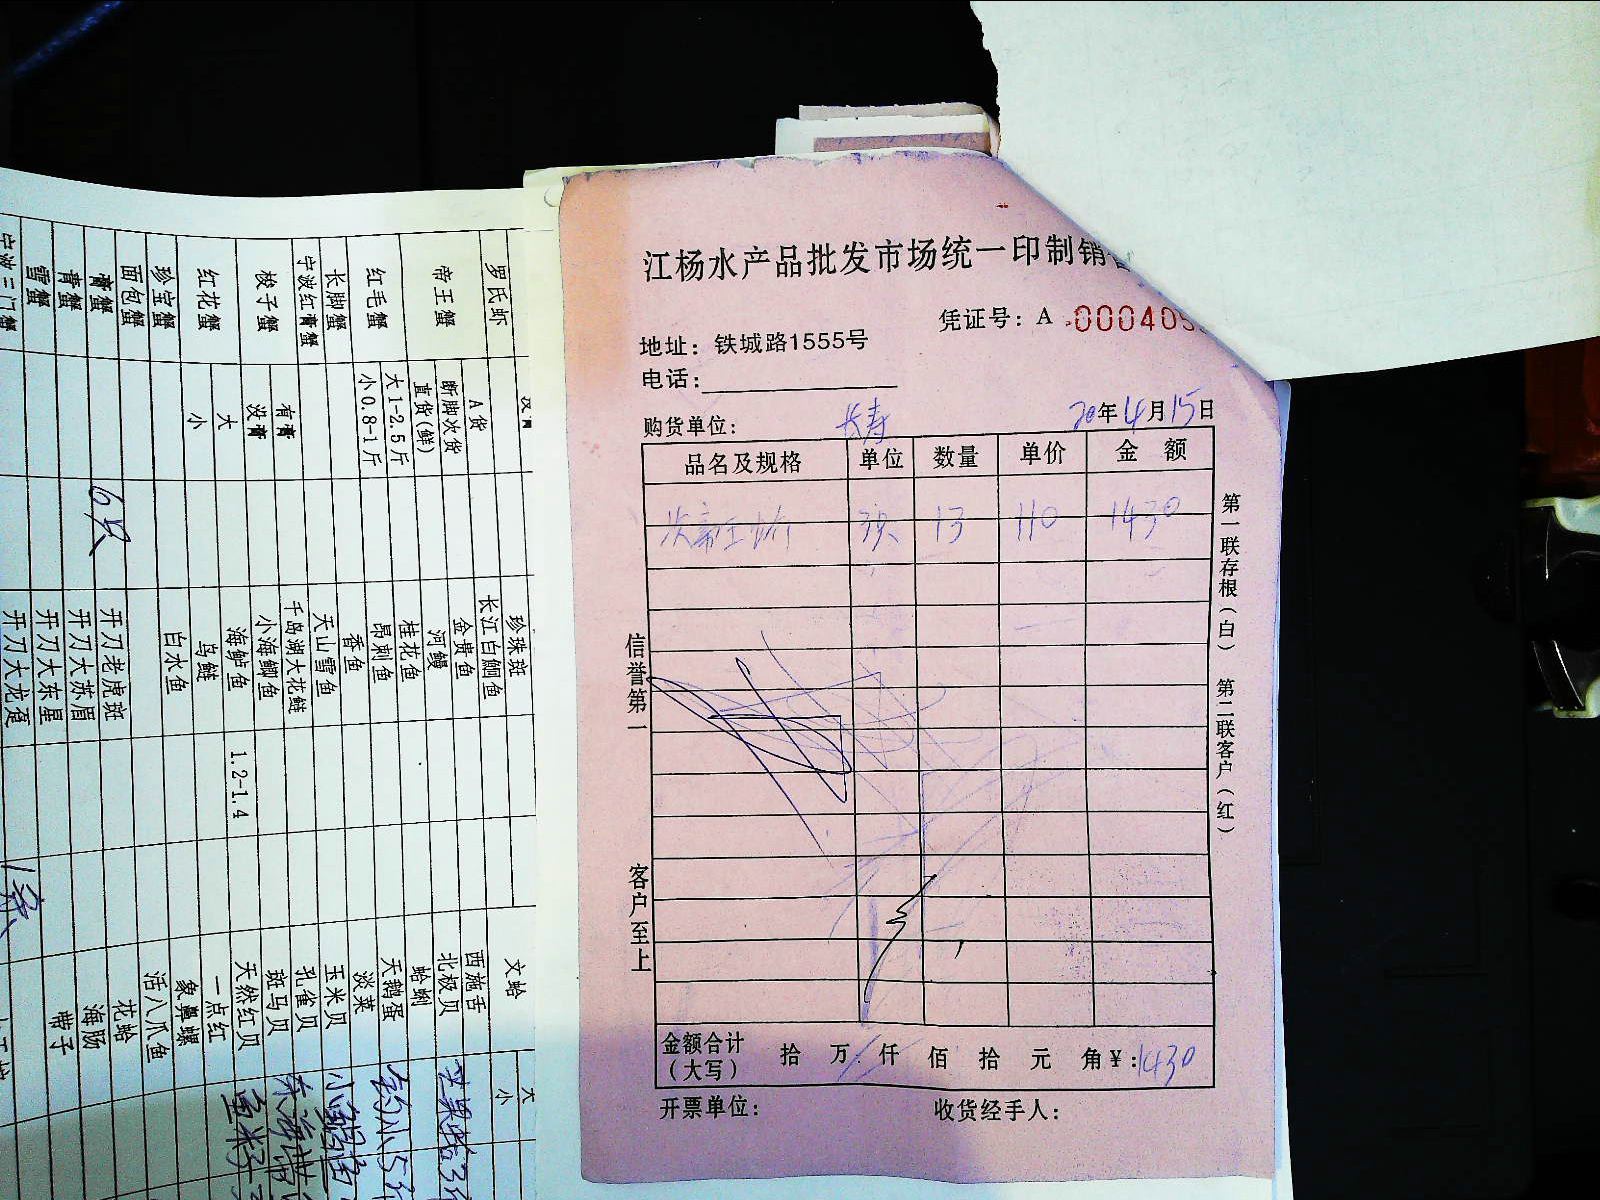 江杨水产品批发市场统一印制销
凭证号：A 000409
地址：铁城路1555号
电话：
购货单位：长寿 20年4月15日
品名及规格 单位 数量 单价 金 额
次帝王蟹 只 13 110 1430
信誉第一
客户至上
第一联存根（白） 第二联客户（红）
金额合计（大写） 拾 万 仟 佰 拾 元 角 ¥：1430
开票单位： 收货经手人：
罗氏虾
帝王蟹 A货
断脚次货
直货(鲜)
红毛蟹 大1-2.5斤
小0.8-1斤
长脚蟹
宁波红膏蟹
梭子蟹 有膏
没膏
红花蟹 大
小
珍宝蟹
面包蟹
膏蟹 6只
青蟹
雪蟹
宁波三门蟹
珍珠斑
长江白鮰鱼
金贵鱼
河鳗
桂花鱼
昂刺鱼
香鱼
天山雪鱼
千岛湖大花鲢
小海鲫鱼
海鲈鱼 1.2-1.4
乌鲢
白水鱼
开刀老虎斑
开刀大苏眉
开刀大东星
开刀大龙趸
文蛤 大
小
西施舌
北极贝
蛤蜊
天鹅蛋
淡菜
玉米贝
孔雀贝
斑马贝
天然红贝
一点红
象鼻螺
活八爪鱼
花蛤
海肠
带子